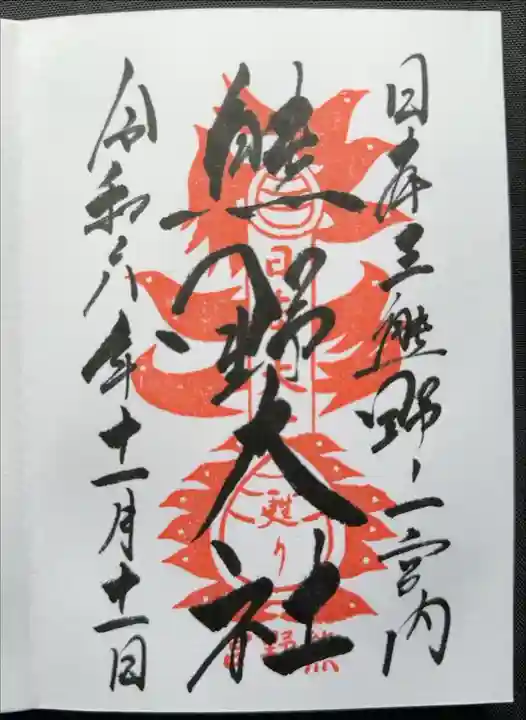 日本三熊野ノ一宮内
熊野大社
令和六年十一月十一日
甦り
熊野